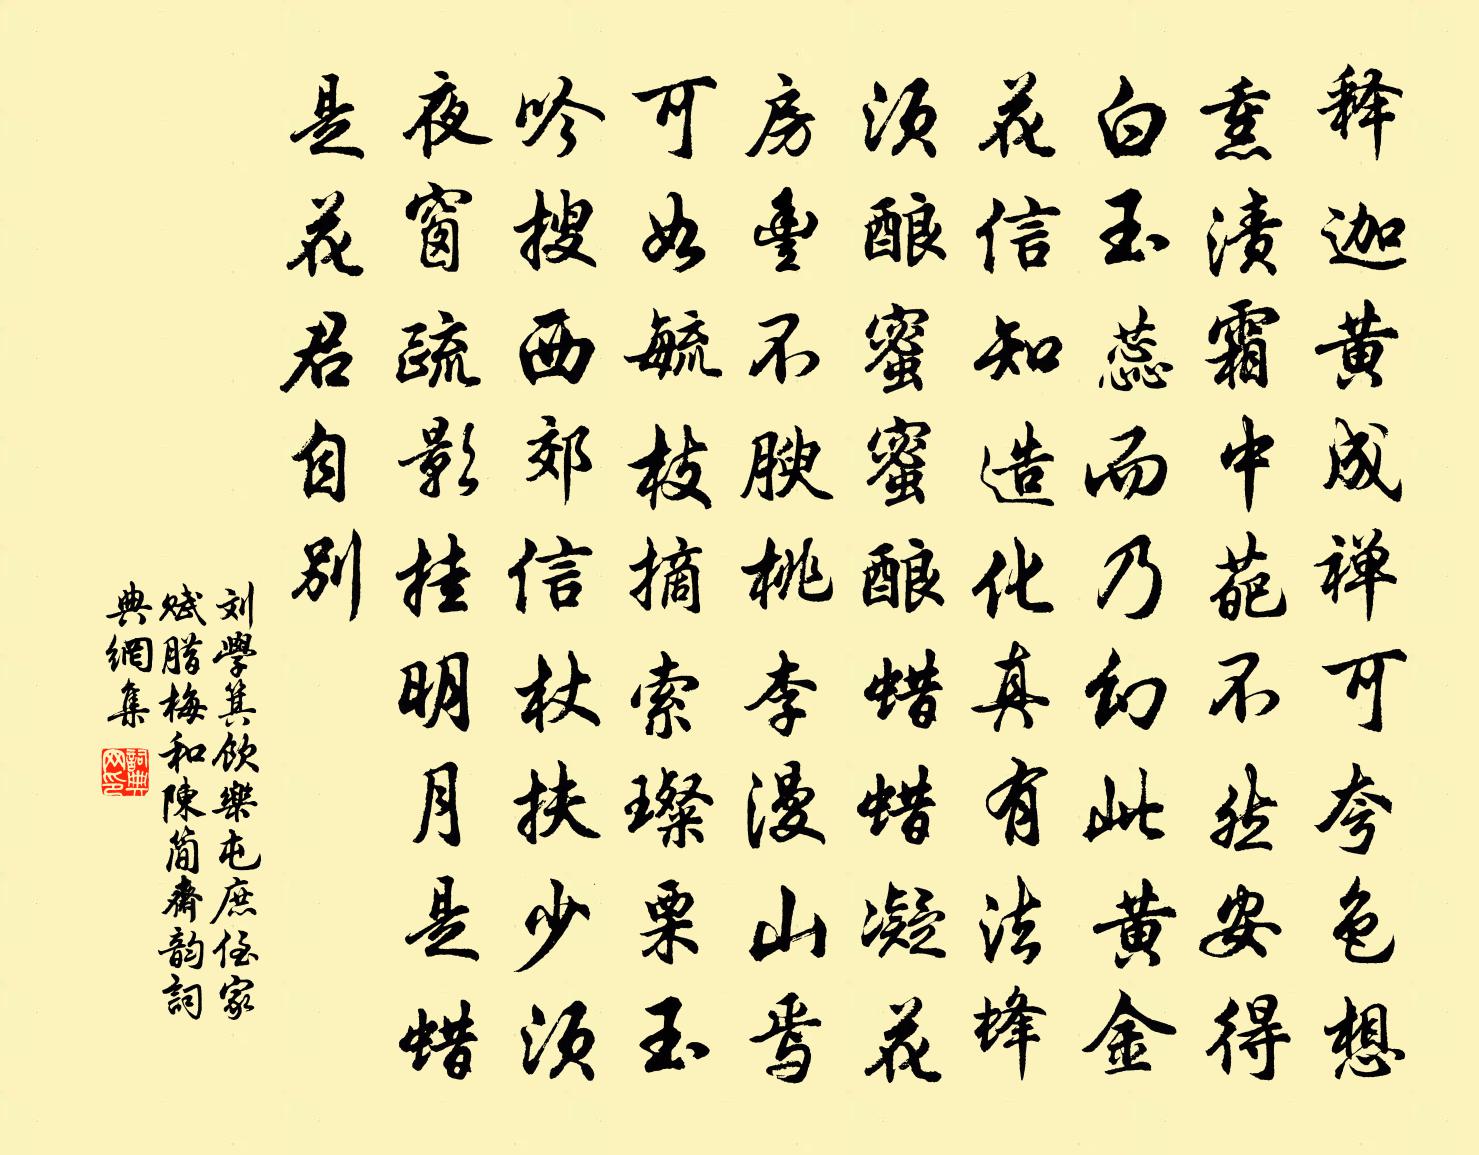 释迦黄成禅可夸色想
熏渍霜中葩不然安得
白玉蕊而乃幻此黄金
花信知造化真有法蜂
须酿蜜蜜酿蜡蜡凝花
房丰不腴桃李漫山焉
可如毓枝摘索璨栗玉
吟搜西郊信杖扶少须
夜窗疏影挂明月是蜡
是花君自别
刘學箕饮樂屯庶侄家
赋腊梅和陳简齋韵詞
典網集
詞典网印